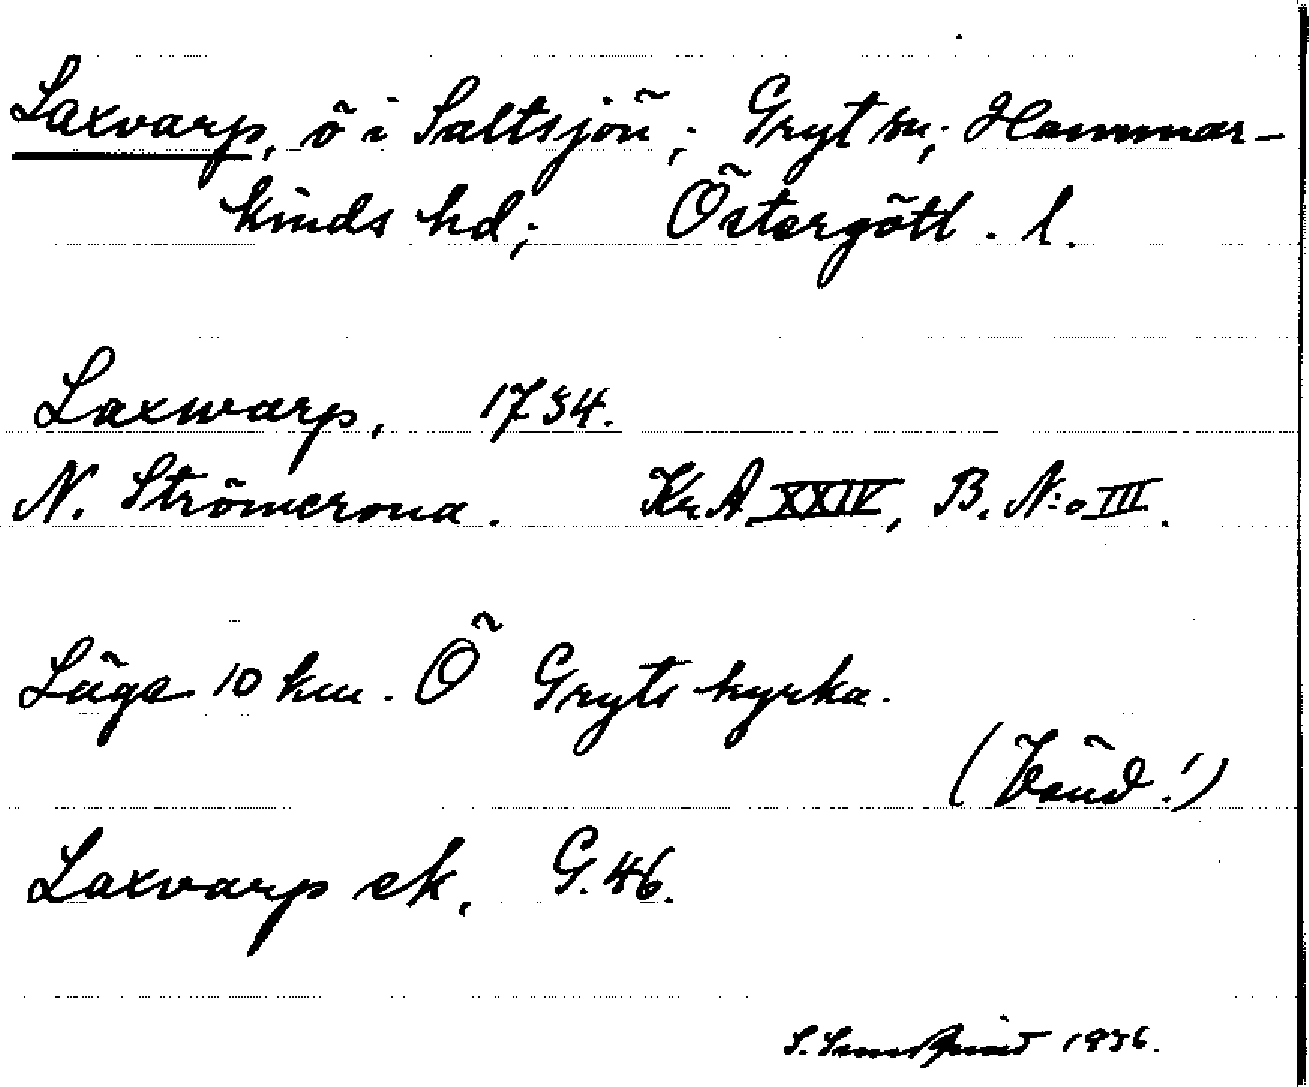 Laxvarp, ö i Saltsjön; Gryt sn; Hammar-
kinds hd; Östergötl. l.
Laxwarp, 1734.
N. Strömcrona. Kr.A. XXIV, B. N:o III.
Läge 10 km. Ö Gryts kyrka.
(Vänd!)
Laxvarp ek. G. 46.
S. 1936.